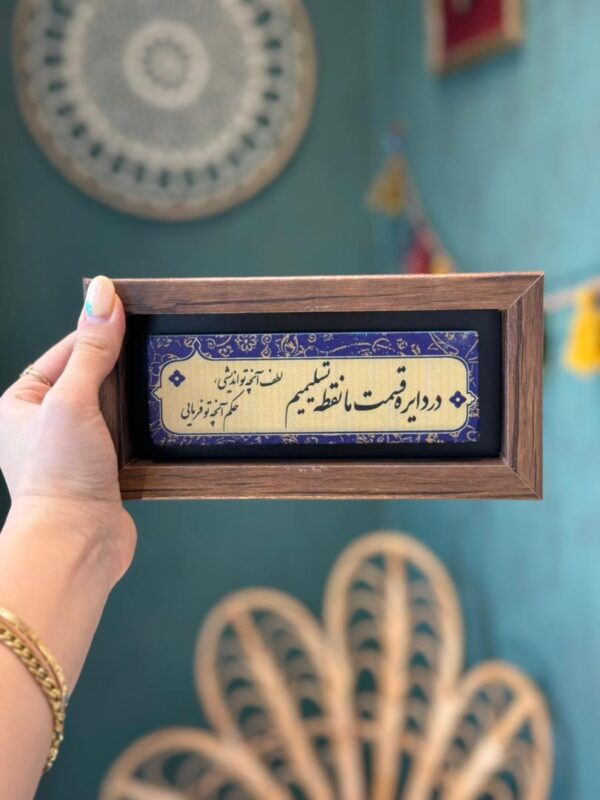 در دایره قسمت ما نقطه تسلیمیم
لطف آنچه تو اندیشی،
حکم آنچه تو فرمایی